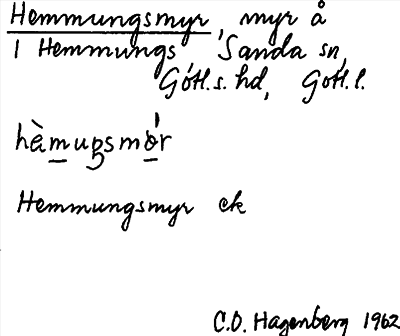 Hemmungsmyr, myr å
1 Hemmungs Sanda sn,
Gotl.s.hd, Gotl.l.
hàmuŋsmór
Hemmungsmyr ek
C.O. Hagenberg 1962